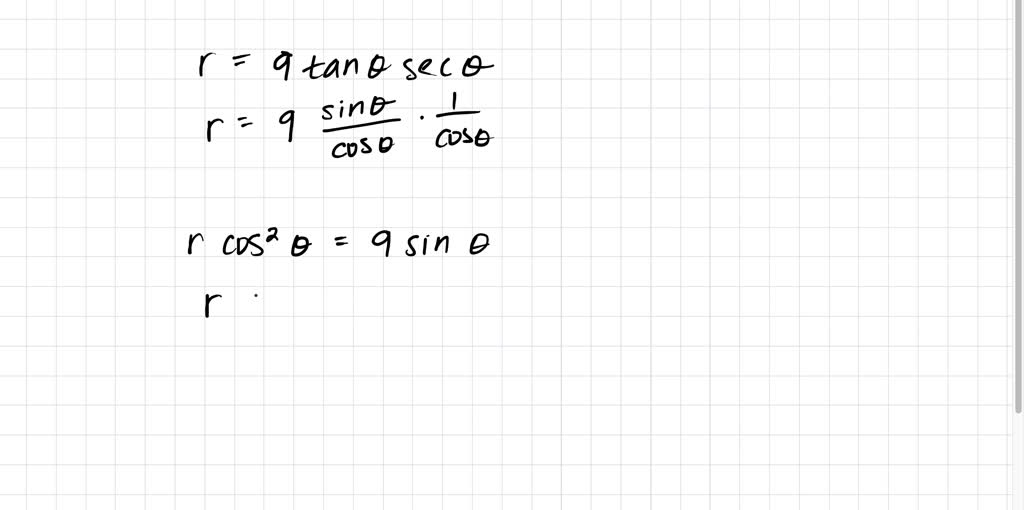 r = 9 tanθ secθ
r = 9 sinθ/cosθ · 1/cosθ
r cos² θ = 9 sin θ
r ·